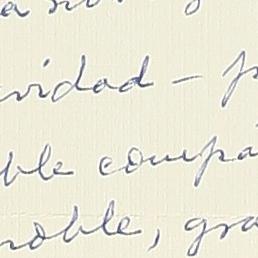 vidad — p
ble compa
noble, gra